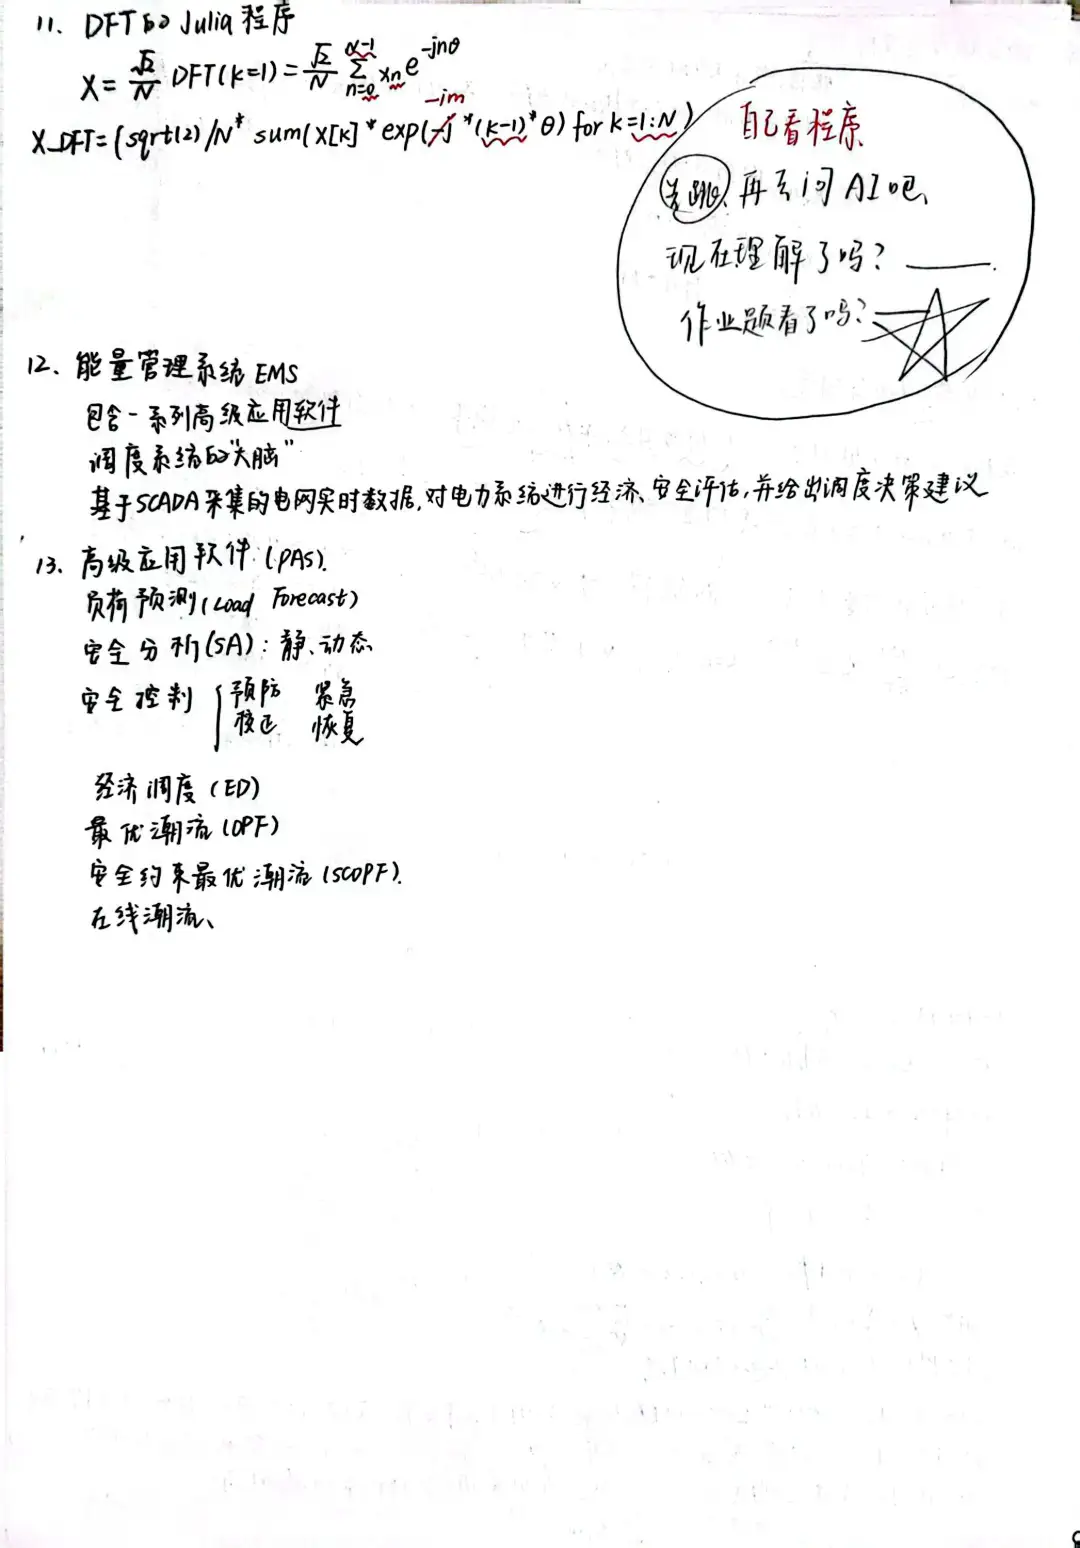 11、DFT的Julia程序
X=√2/N DFT(k=1)=√2/N ∑_{n=0}^{N-1} xn e^{-jnθ}
-im
X_DFT=(sqrt(2)/N* sum(x[k]*exp(-j*(k-1)*θ) for k=1:N)
自己看程序
先跳、再去问AI吧、
现在理解了吗?
作业题看了吗?
12、能量管理系统EMS
包含一系列高级应用软件
调度系统的“大脑”
基于SCADA采集的电网实时数据,对电力系统进行经济、安全评估,并给出调度决策建议
13、高级应用软件(PAS).
负荷预测(Load Forecast)
安全分析(SA):静、动态
安全控制 预防 紧急
校正 恢复
经济调度(ED)
最优潮流(OPF)
安全约束最优潮流(SCOPF).
在线潮流、